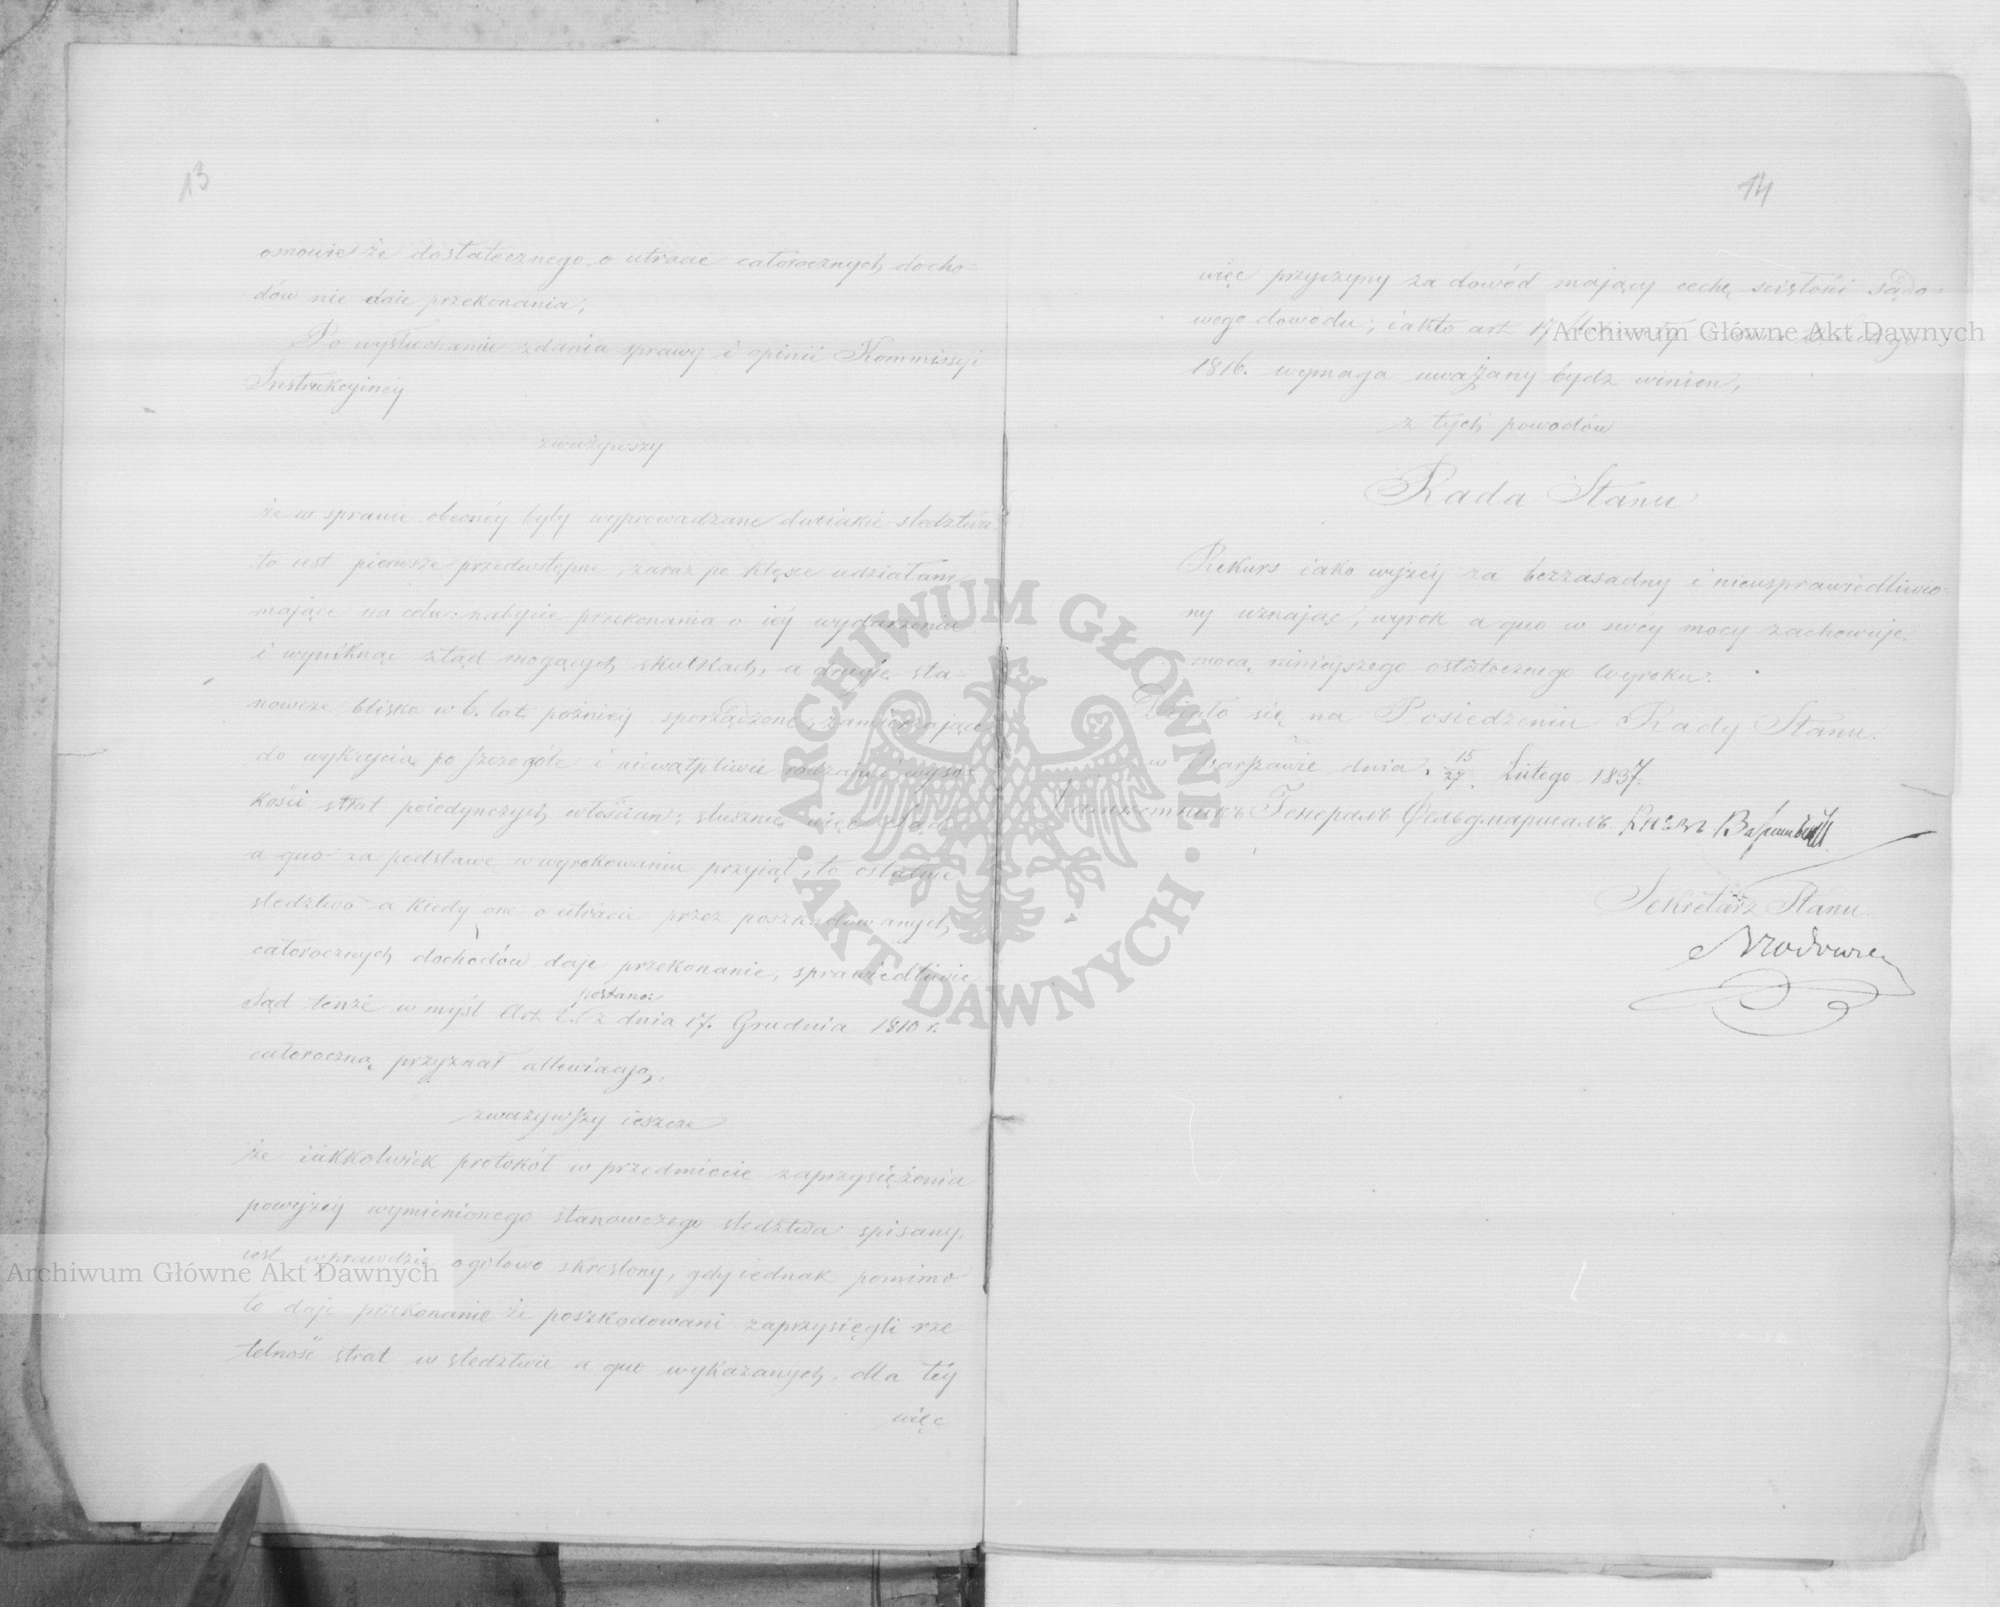 13
omowie że dostatecznego o utracie całorocznych docho=
dów nie daie przekonania,
Po wysłuchaniu zdania sprawy i opinii Kommissyi
Instrukcyinéy
zważywszy
że w sprawie obecnéy były wyprowadzane dwoiakie śledztwa
to iest pierwsze przedwstępne, zaraz po klęsce udziałane
mające na celu: nabycie przekonania o iéy wydarzeniu
i wyniknąć ztąd mogących skutkach, a drugie sta=
nowcze blisko w 6. lat późniéy sporządzone, zamierzające
do wykrycia po szczególe i niewątpliwie rodzaiu i wyso=
kości strat poiedynczych włościan; słusznie więc Sąd
a quo za podstawę w wyrokowaniu przyiął, to ostatnie
śledztwo a kiedy one o utracie przez poszkodowanych
całorocznych dochodów daje przekonanie, sprawiedliwie
Sąd tenże w myśl Art. 2. postano: z dnia 17. Grudnia 1810 r.
całoroczną przyznał allewiacją,
zważywszy ieszcze
że iakkolwiek protokół w przedmiocie zaprzysiężenia
powyżéy wymienionego stanowczego śledztwa spisany,
iest wprawdzie ogółowo skreślony, gdy iednak pomimo
to daje przekonanie że poszkodowani zaprzysięgli rze=
telność strat w śledztwie a quo wykazanych, dla téy
więc
14
więc przyczyny za dowód mający cechę ścisłości sądo=
wego dowodu; iak to art 17
1816. wymaga uważany bydz winien,
z tych powodów
Rada Stanu
Rekurs iako wyżéy za bezzasadny i nieusprawiedliwio=
ny uznając, wyrok a quo w swéy mocy zachowuje,
mocą ninieyszego ostatecznego wyroku.
Działo się na Posiedzeniu Rady Stanu
w Warszawie dnia 15/27. Lutego 1837.
Намѣстникъ Генералъ Фельдмаршалъ Князь Варшавскій
Sekretarz Stanu
Archiwum Główne Akt Dawnych
Archiwum Główne Akt Dawnych
ARCHIWUM GŁÓWNE
AKT DAWNYCH